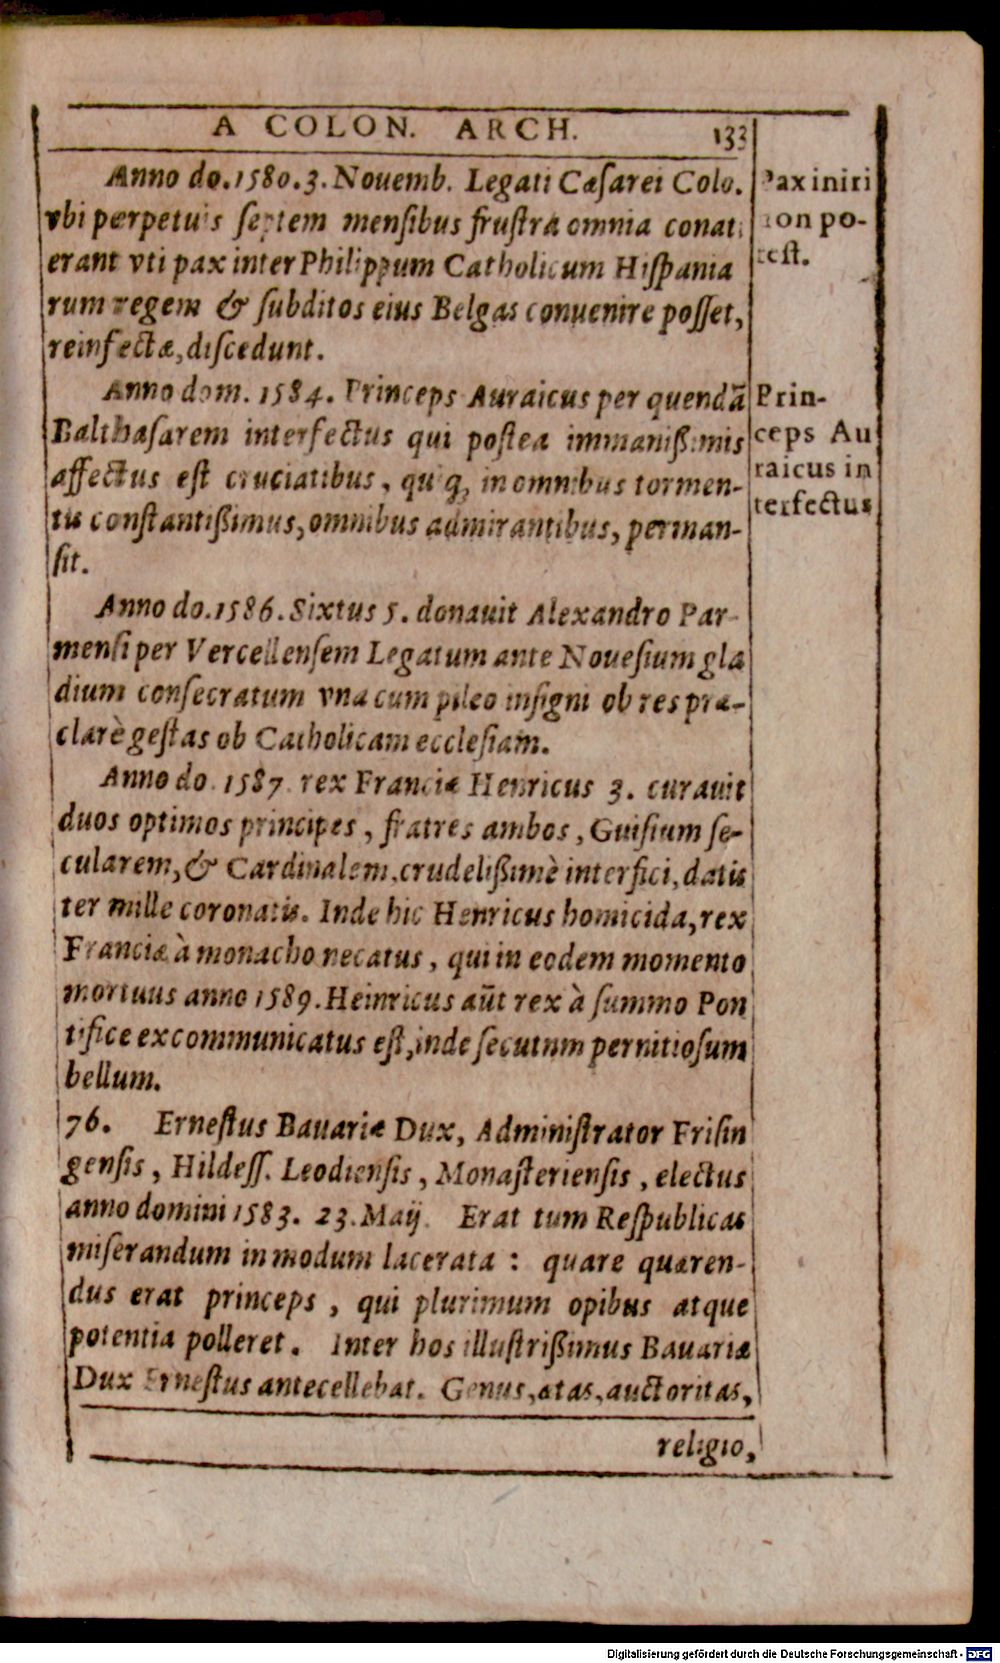 A COLON. ARCH. 133
Anno do. 1580. 3. Nouemb. Legati Cæsarei Colo.
vbi perpetuis septem mensibus frustra omnia conati
erant vti pax inter Philippum Catholicum Hispania
rum regem & subditos eius Belgas conuenire posset,
re infectæ, discedunt.
Pax iniri
non po-
test.
Anno dom. 1584. Princeps Auraicus per quendā
Balthasarem interfectus qui postea immanißimis
affectus est cruciatibus, quiq; in omnibus tormen-
tis constantißimus, omnibus admirantibus, perman-
sit.
Prin-
ceps Au
raicus in
terfectus
Anno do. 1586. Sixtus 5. donauit Alexandro Par-
mensi per Vercellensem Legatum ante Nouesium gla
dium consecratum vna cum pileo insigni ob res præ-
clarè gestas ob Catholicam ecclesiam.
Anno do. 1587. rex Franciæ Henricus 3. curauit
duos optimos principes, fratres ambos, Guisium se-
cularem, & Cardinalem, crudelißimè interfici, datis
ter mille coronatis. Inde hic Henricus homicida, rex
Franciæ à monacho necatus, qui in eodem momento
mortuus anno 1589. Heinricus aūt rex à summo Pon
tifice excommunicatus est, inde secutum pernitiosum
bellum.
76. Ernestus Bauariæ Dux, Administrator Frisin
gensis, Hildess. Leodiensis, Monasteriensis, electus
anno domini 1583. 23. Maij. Erat tum Respublicas
miserandum in modum lacerata : quare quæren-
dus erat princeps, qui plurimum opibus atque
potentia polleret. Inter hos illustrißimus Bauariæ
Dux Ernestus antecellebat. Genus, ætas, auctoritas,
religio,
Digitalisierung gefördert durch die Deutsche Forschungsgemeinschaft - DFG